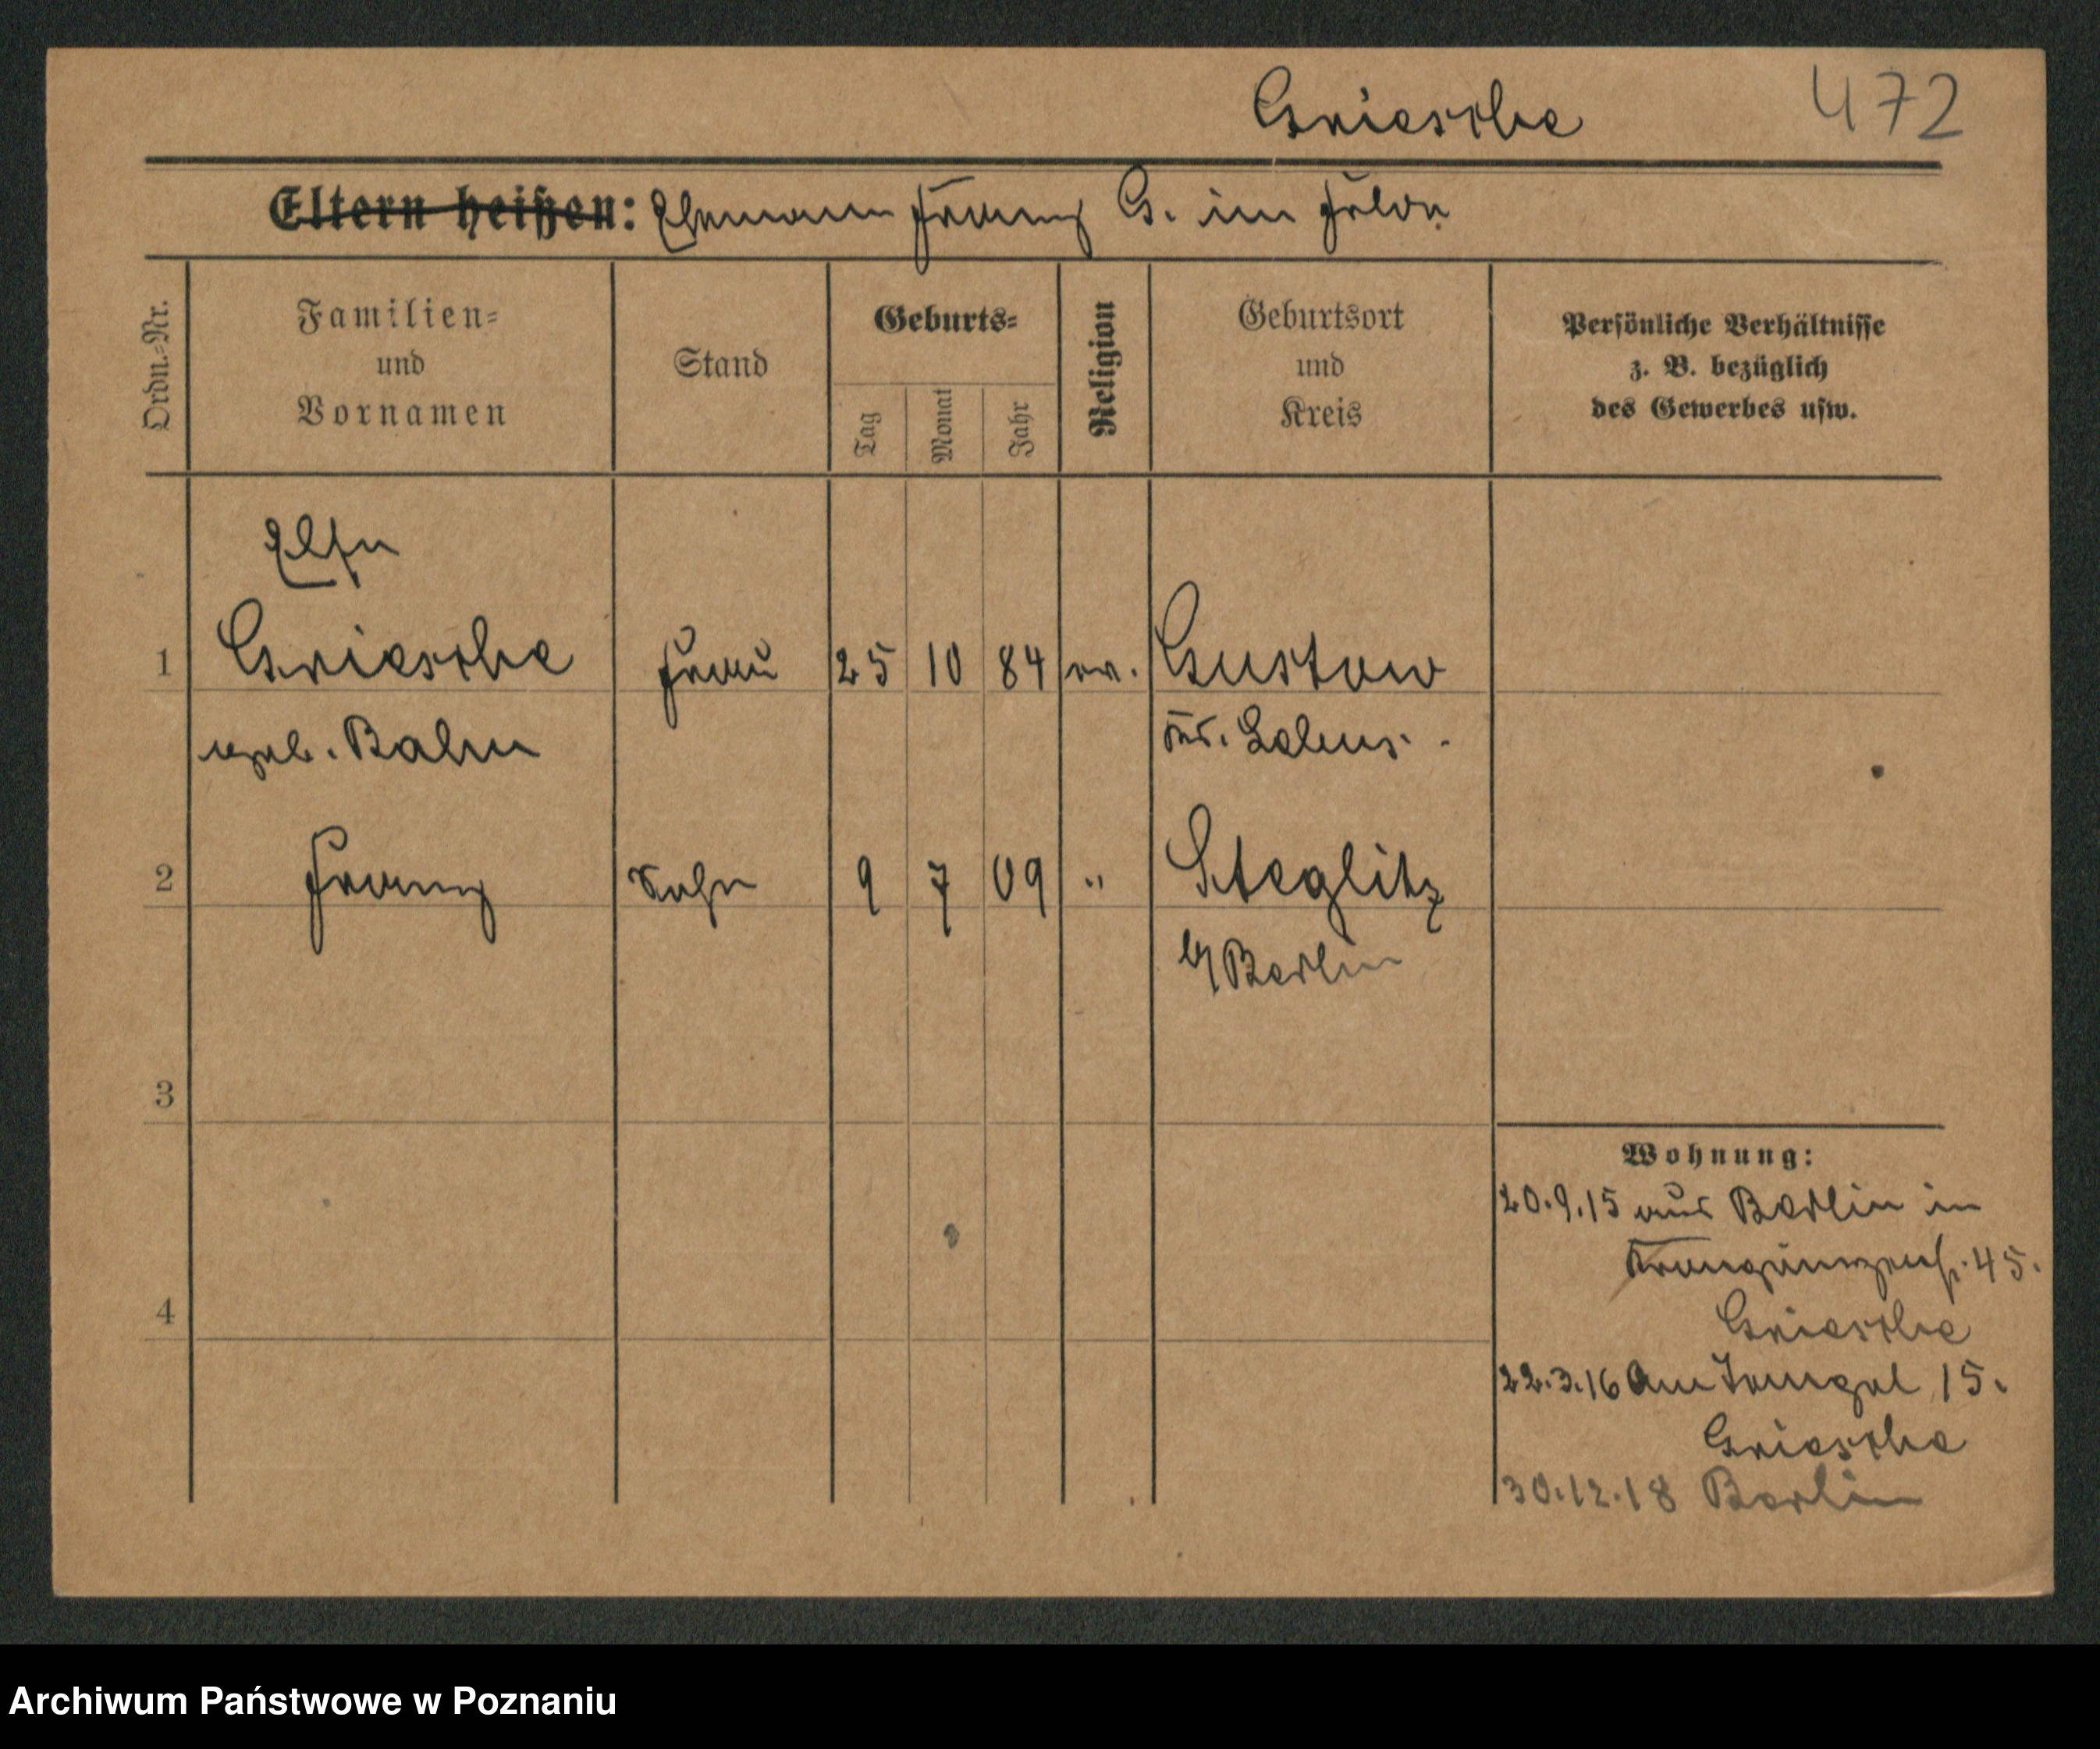 Grieselhe 472
Eltern heißen: Ehemann Franz G. im Felde
Ordn.-Nr.
Familien-
und
Vornamen
Stand
Geburts-
Tag
Monat
Jahr
Religion
Geburtsort
und
Kreis
Persönliche Verhältnisse
z. B. bezüglich
des Gewerbes usw.
Else
1 Griesche Frau 25 10 84 ev. Gustow
geb. Bahn Krs. Lebus.
2 Franz Sohn 9 7 09 " Steglitz
b/ Berlin
3
4
Wohnung:
20.9.15 aus Berlin in
45.
Griesche
22.3.16 Am 15.
Griesche
30.12.18 Berlin
Archiwum Państwowe w Poznaniu